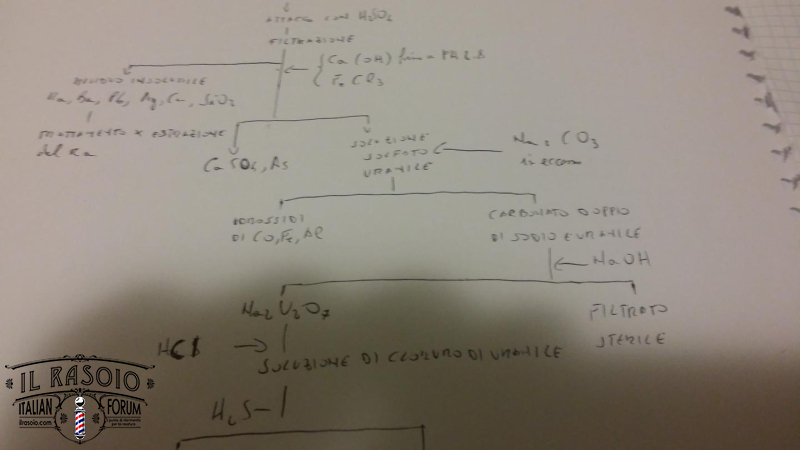 ATTACCO CON H2SO4
FILTRAZIONE
Ca(OH) fino a PH 2.8
FeCl3
RESIDUO INSOLUBILE
Ra, Ba, Pb, Ag, Ca, SiO2
TRATTAMENTO X ESTRAZIONE
del Ra
CaSO4, As
SOLUZIONE
SOLFATO
URANILE
Na2CO3
in eccesso
IDROSSIDI
DI CO, Fe, Al
CARBONATO DOPPIO
DI SODIO E URANILE
NaOH
Na2U2O7
FILTRATO
STERILE
HCl
SOLUZIONE DI CLORURO DI URANILE
H2S
IL RASOIO
ITALIAN FORUM
ilrasoio.com